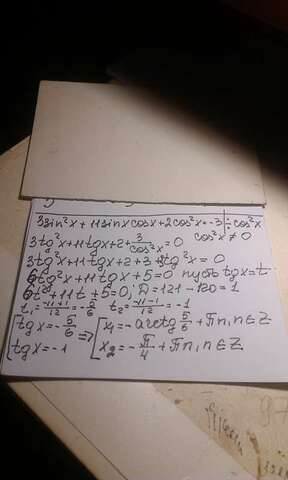 3sin²x + 11sinxcosx + 2cos²x = -3 | ÷ cos²x
3tg²x + 11tgx + 2 + 3/cos²x = 0 cos²x ≠ 0
3tg²x + 11tgx + 2 + 3 + 3tg²x = 0
6tg²x + 11tgx + 5 = 0 пусть tgx = t
6t² + 11t + 5 = 0; D = 121 - 120 = 1
t₁ = (-11+1)/12 = -5/6 t₂ = (-11-1)/12 = -1
[tgx = -5/6 ⇒ [x₁ = -arctg 5/6 + πn, n ∈ Z
[tgx = -1 [x₂ = -π/4 + πn, n ∈ Z